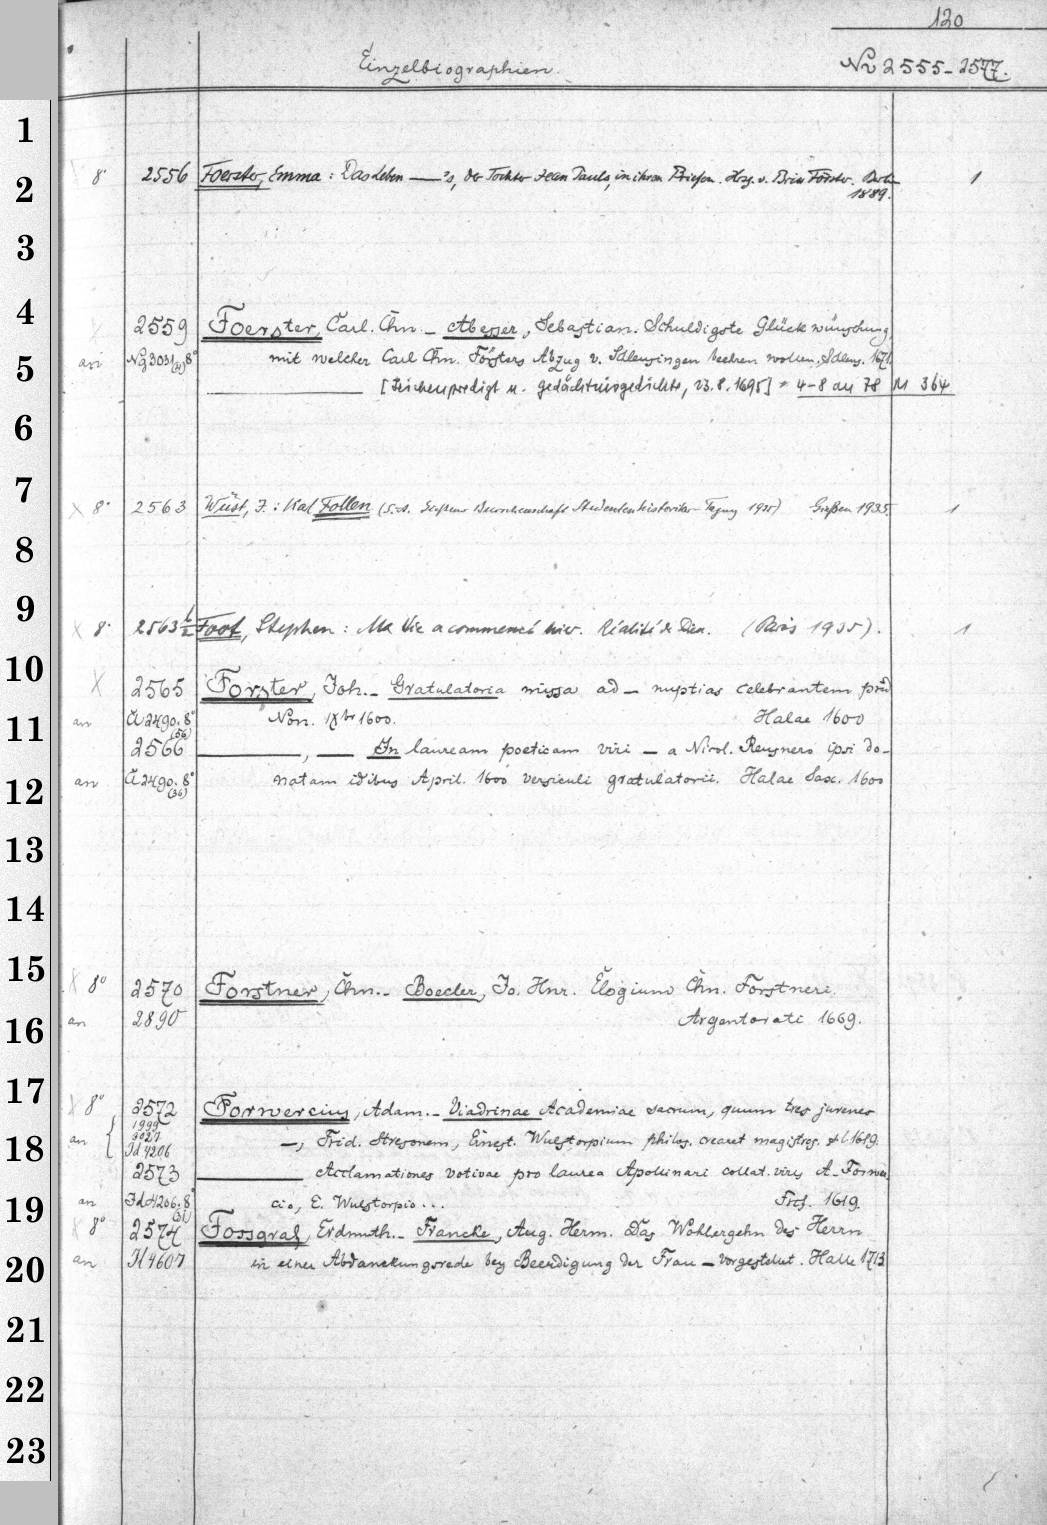 120
Einzelbiographien.
No 2555-2577.
1
2
8° 2556 Foerster, Emma: Das Leben ——'s, der Tochter Jean Pauls, in ihren Briefen. Hrsg. v. Brix Förster. Berlin 1
1889.
3
4
2559 Foerster, Carl. Chn. – Abesser, Sebastian. Schuldigste Glückwünschung
5
an No 3031 8° mit welcher Carl Chn. Försters Abzug v. Schleusingen beehren wollen. Schleus. 1671.
(4)
—— [Leichenpredigt u. gedächtnisgedichte, 23.8.1695] = 4-8 an 78 M 364
6
7
X 8° 2563 Wüst, J.: Karl Follen (S.-A. Giessener Burschenschaft Studentenhistoriker-Tagung 1935) Gießen 1935. 1
8
9
X 8° 2563 1/2 Foot, Stephen: Ma Vie a commencé hier. Réalité de Dieu. (Paris 1935). 1
10
X 2565 Forster, Joh. – Gratulatoria missa ad – nuptias celebrantem prid
11
an Ä 2490. 8° Non. IXbr 1600. Halae 1600
(56)
2566 ——, — In lauream poeticam viri – a Nicol. Reusnero ipsi do-
12
an Ä 2490. 8° natam idibus April. 1600 versiculi gratulatorii. Halae Sax. 1600
(36)
13
14
15
X 8° 2570 Forstner, Chn. – Boecler, Jo. Hnr. Elogium Chn. Forstneri.
16
an 2890 Argentorati 1669.
17
X 8° 2572 Forwercius, Adam. – Viadrinae Academiae sacrum, quum tres juvenes
1999
18
an 3027 –, Frid. Stresonem, Ernest. Wulstorpium philos. crearet magistros.
Id 4206
2573 —— Acclamationes votivae pro laurea Apollinari collat. viris A. Forwer
19
an Id 4206. 8° cio, E. Wulstorpio... Frcf. 1619.
(31)
X 8° 2574 Fossgraf, Erdmuth. – Francke, Aug. Herm. Das Wohlergehn des Herrn
20
an Il 4607 in einer Abdanckungsrede bey Beerdigung der Frau – vorgestellet. Halle 1713
21
22
23